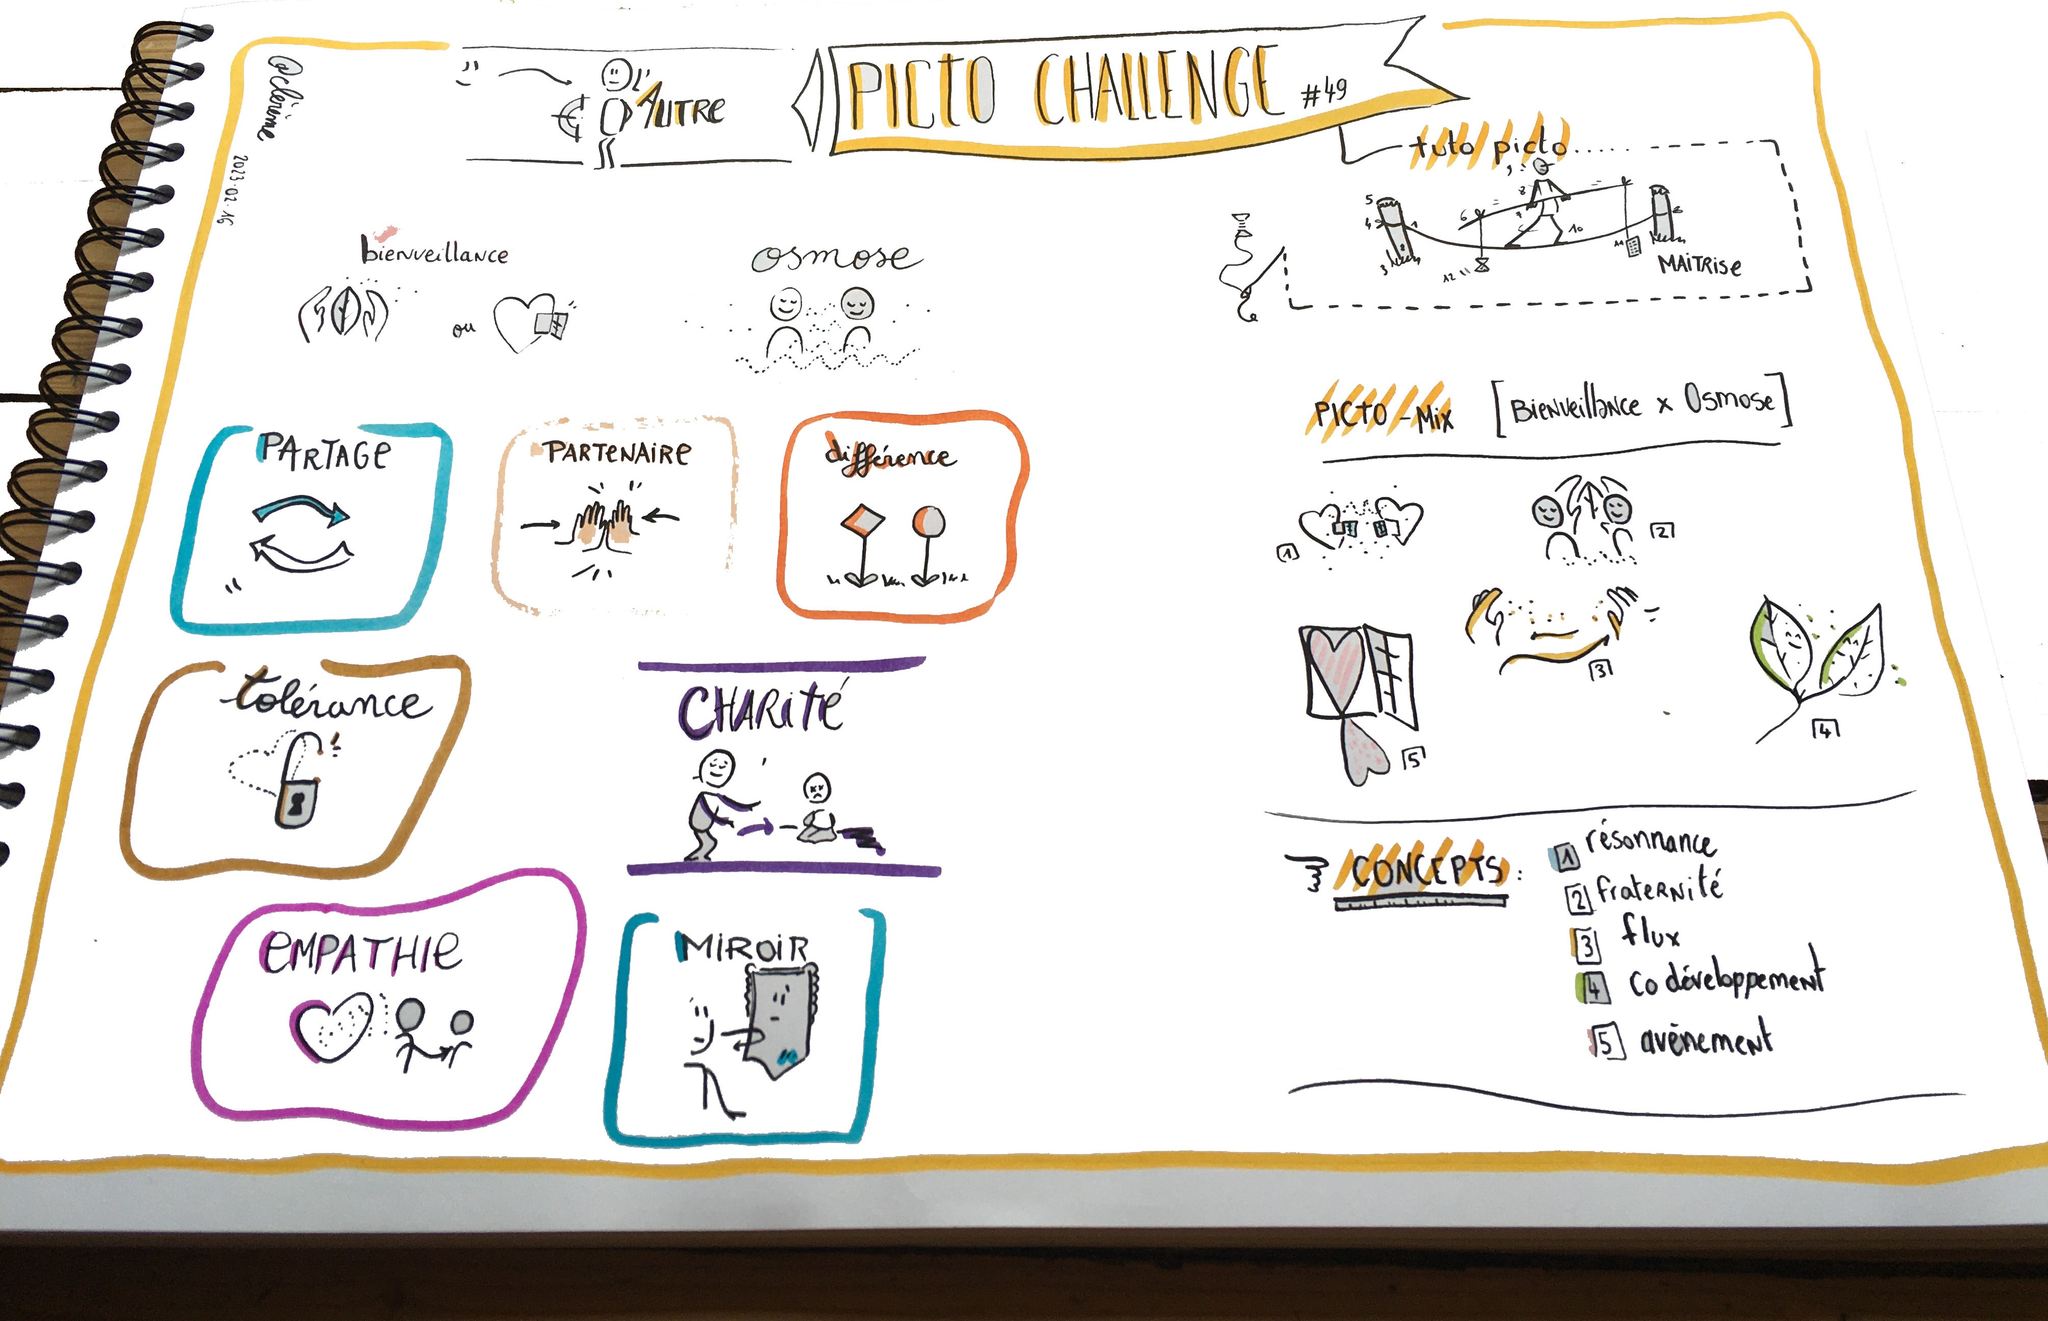 @clérôme
2023.02.16
AUTRE
PICTO CHALLENGE #49
tuto picto
5
4
3
1
2
6
7
8
9
10
11
12
MAITRISE
bienveillance
ou
osmose
PARTAGE
PARTENAIRE
différence
tolérance
CHARITÉ
EMPATHIE
MIROIR
PICTO-MIX [BIENVEILLANCE x OSMOSE]
1
2
3
4
5
CONCEPTS:
1 résonnance
2 fraternité
3 flux
4 co développement
5 avènement